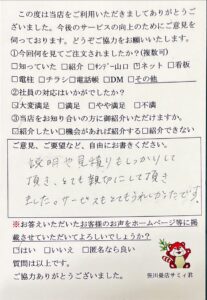 この度は当店をご利用いただきましてありがとうご
ざいました。今後のサービスの向上のためにご意見を
伺っております。どうぞご協力をお願いいたします。
①今回何を見てご注文されましたか?(複数可)
□知っていた □紹介 □サンデー山口 ☑ネット □看板
□電柱 □チラシ □電話帳 □DM □その他
②社員の対応はいかがでしたか?
☑大変満足 □満足 □やや満足 □不満
③当店をお知り合いの方に御紹介いただけますか。
□紹介したい □機会があれば紹介する □紹介できない
ご意見、ご要望など、自由にお書きください。
説明や見積りもしっかりして
頂き、とても親切にして頂き
ました。サービスもとてもうれしかったです。
※お答えいただいたお客様のお声をホームページ等に掲
載させていただいてよろしいでしょうか?
□はい □いいえ □匿名なら良い
質問は以上です。
ご協力ありがとうございました。
畳店サミィ君